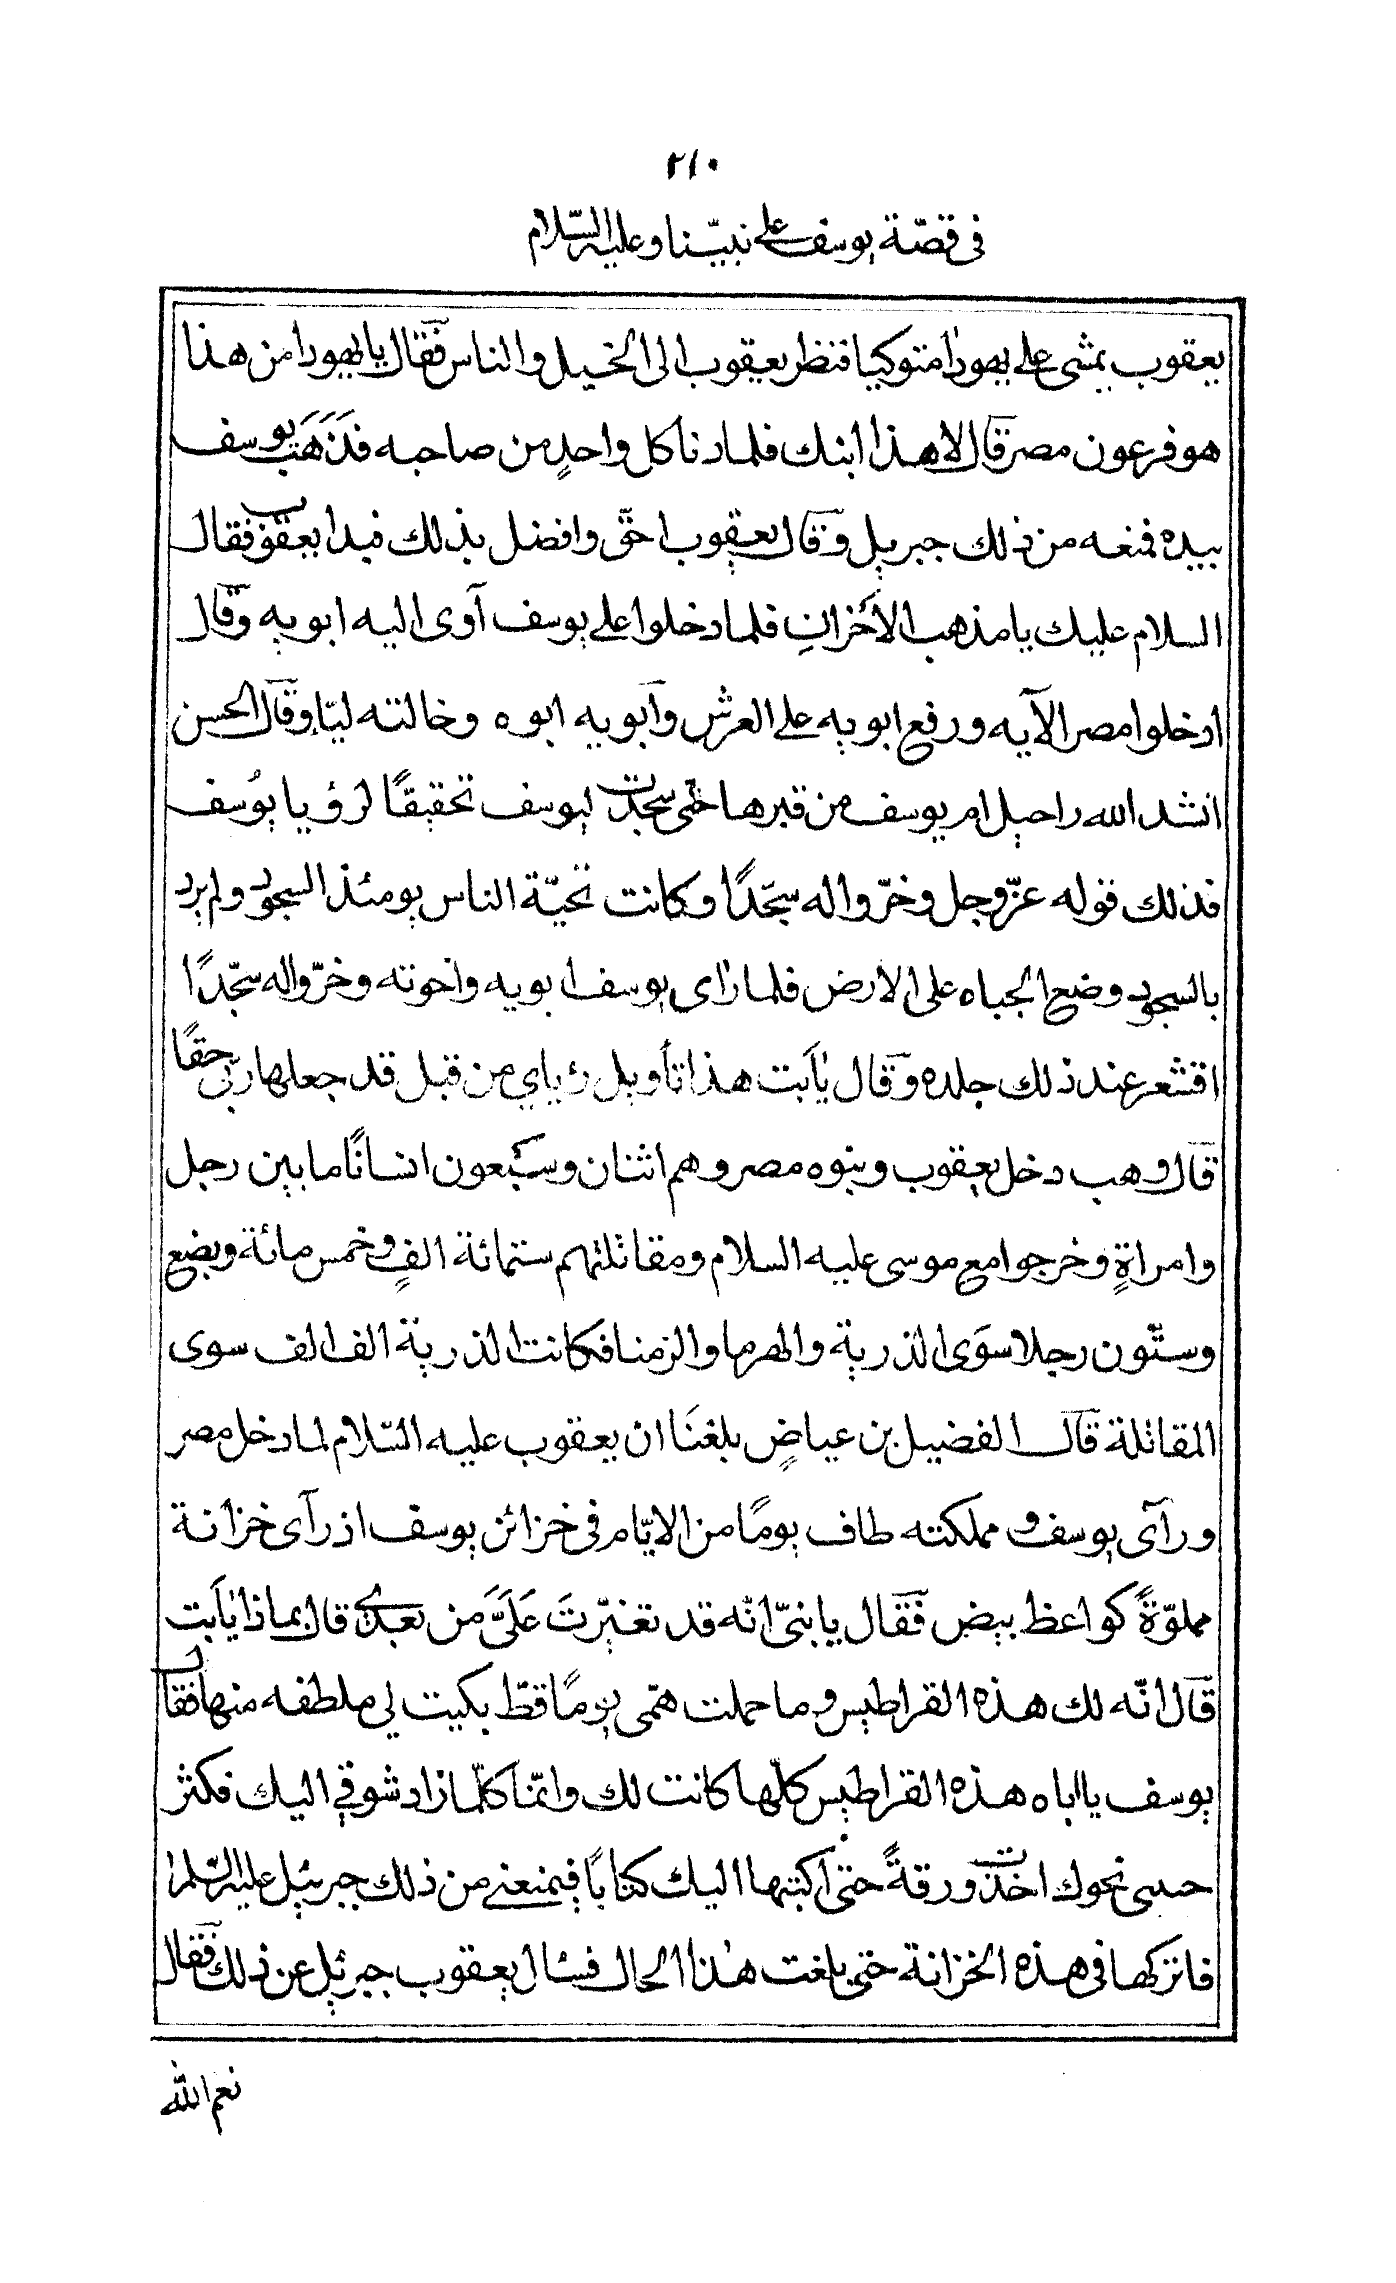 ٢١٠
فى قصّة يوسف على نبيّنا وعليه السّلام
يعقوب يمشى على يهودا متوكيا فنظر يعقوب الى الخيل والناس فقال يا يهودا من هذا
هو فرعون مصر قال لا هذا ابنك فلما دنا كل واحدٍ من صاحبه فذَهَبَ يوسف
بيده فمنعه من ذلك جبريل وقال يعقوب احقّ وافضل بذلك فبدا يعقوب فقال
السلام عليك يا مذهب الأحْزانِ فلما دخلوا على يوسف آوى اليه ابويه وقال
ادخلوا مصر الآيه ورفع ابويه على العرش وأبويه ابوه وخالته ليّا وقال الحسن
انشد الله راحيل ام يوسف من قبرها حتّى سجدت ليوسف تحقيقًا لرؤيا يوُسف
فذلك قوله عزّوجل وخرّوا له سجّدًا وكانت تحيّة الناس يومئذ السجود ولم يرد
بالسجود وضع الجباه على الارض فلما رأى يوسف ابويه واخوته وخرّوا له سجّدًا
اقشعر عند ذلك جلده وقال يٰاَبت هذا تأويل رئياي من قبل قد جعلها ربّى حقًا
قال وهب دخل يعقوب وبنوه مصر وهم اثنان وسَبْعون انسانًا ما بين رجل
وامراةٍ وخرجوا مع موسى عليه السلام ومقاتلتهم ستمائة الفٍ وخمس مائة وبضع
وستّون رجلا سوَى الذرية والهرما والزمنا فكانت الذرية الف الف سوى
المقاتلة قال الفضيل بن عياضٍ بلغنَا ان يعقوب عليه السّلام لما دخل مصر
ورآى يوسف و مملكته طاف يومًا من الايّام فى خزائن يوسف اذ رآى خزانة
مملوّةً كواعظ بيض فقال يا بنىّ انّه قد تغيّرتَ عَلَىَّ من بعدى قال بماذا يٰاَبت
قال انّه لك هذه القراطيس و ما حملت همّى يومًا قطّ بكيت لي ملطفه منها فقال
يوسف يا اباه هذه القراطيس كلّها كانت لك وانّما كلّما زاد شوقي اليك فكثر
حسى نحوك اخذت ورقةً حتى اكتبها اليك كتابًا فيمنعنى من ذلك جبرئيل عليه السّلم
فاتركها فى هذه الخزانة حتى بلغت هٰذا الحال فسئال يعقوب جبرئيل عن ذلك فقال
نعم الله